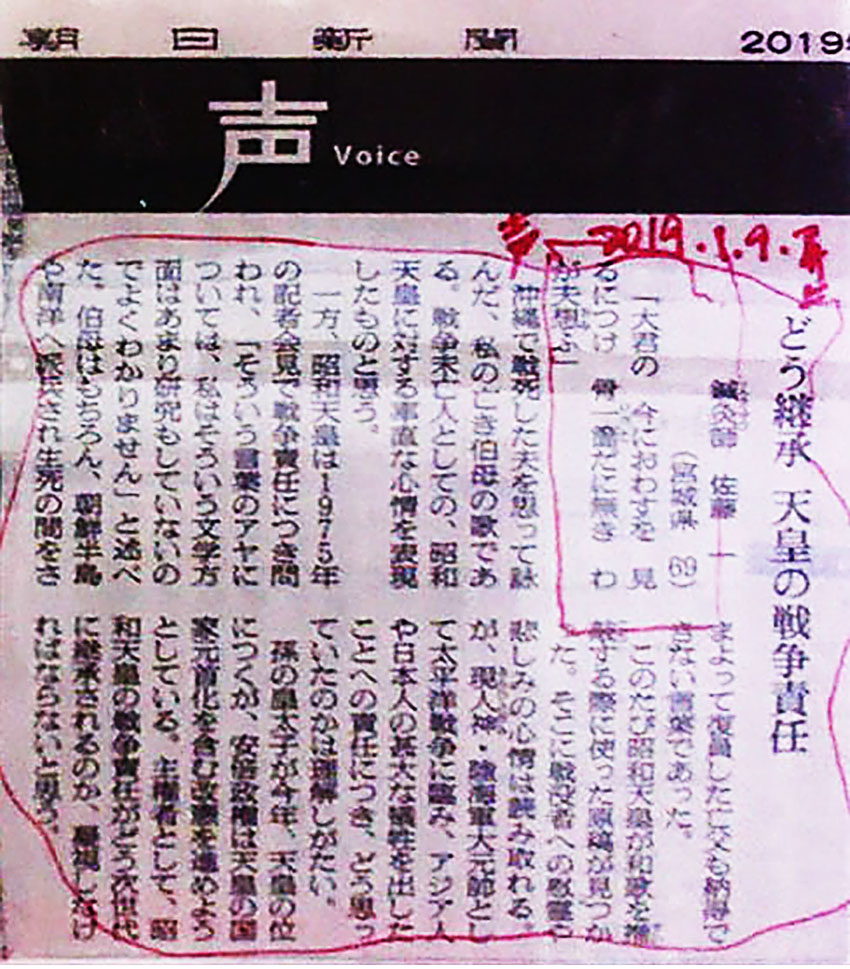 朝日新聞 2019
声 Voice
2019.1.9.
どう継承 天皇の戦争責任
鍼灸師 佐藤 一
(宮城県 69)
「大君の 今におわすを 見
るにつけ 骨一 だに無き わ
が夫思ふ」
沖縄で戦死した夫を思って詠
んだ、私の亡き伯母の歌であ
る。戦争未亡人としての、昭和
天皇に対する率直な心情を表現
したものと思う。
一方、昭和天皇は1975年
の記者会見で戦争責任につき問
われ、「そういう言葉のアヤに
ついては、私はそういう文学方
面はあまり研究もしていないの
でよくわかりません」と述べ
た。伯母はもちろん、朝鮮半島
や南洋へ され生死の間をさ
まよって復員した亡父も納得で
きない言葉であった。
このたび昭和天皇が和歌を推
敲する際に使った原稿が見つかっ
た。そこに戦没者への慰霊や
悲しみの心情は読み取れる。
が、現人神・陸海軍大元帥とし
て太平洋戦争に臨み、アジア人
や日本人の甚大な犠牲を出した
ことへの責任につき、どう思っ
ていたのかは理解しがたい。
孫の皇太子が今年、天皇の位
につくが、安倍政権は天皇の国
家元首化を含む改憲を進めよう
としている。主権者として、昭
和天皇の戦争責任がどう次世代
に継承されるのか、重視しなけ
ればならないと思う。